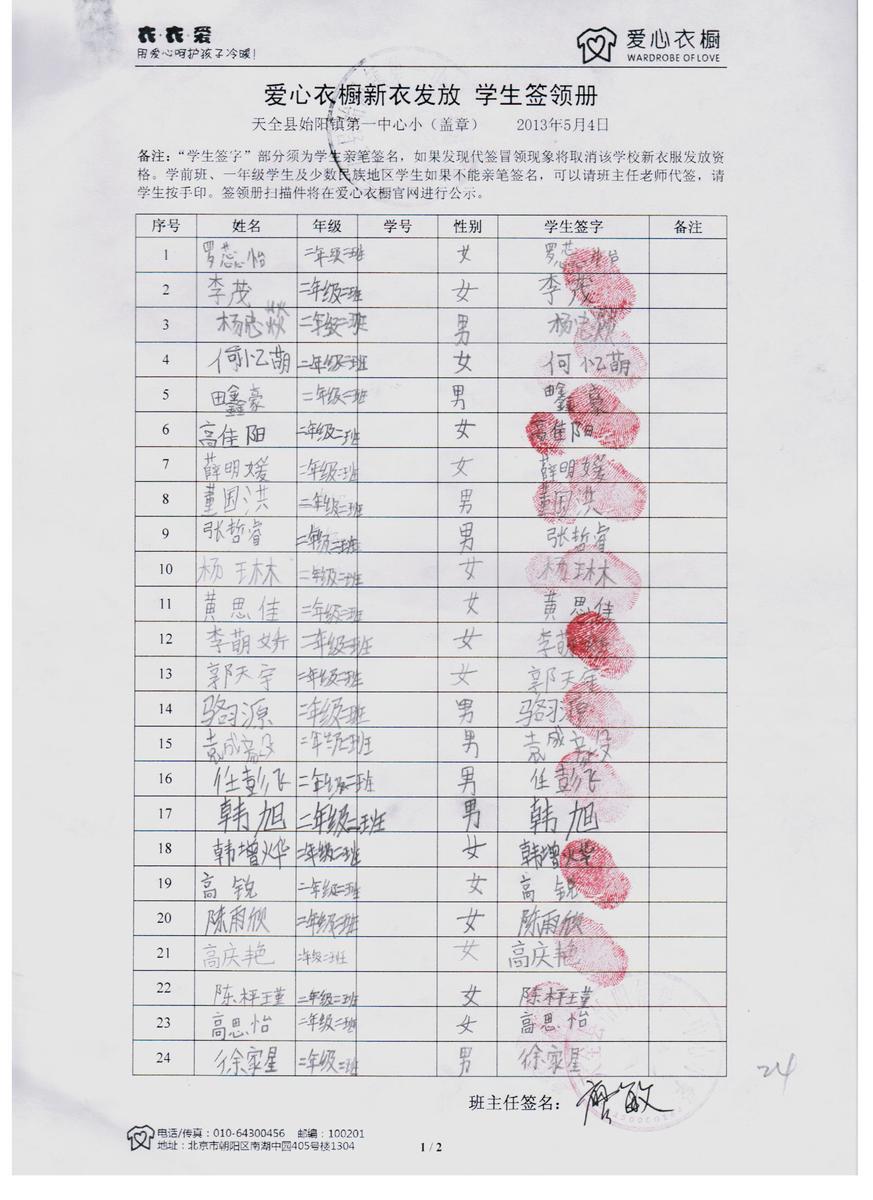 衣·衣·爱
用爱心呵护孩子冷暖!
爱心衣橱
WARDROBE OF LOVE
爱心衣橱新衣发放 学生签领册
天全县始阳镇第一中心小（盖章） 2013年5月4日
备注："学生签字"部分须为学生亲笔签名，如果发现代签冒领现象将取消该学校新衣服发放资
格。学前班、一年级学生及少数民族地区学生如果不能亲笔签名，可以请班主任老师代签，请
学生按手印。签领册扫描件将在爱心衣橱官网进行公示。
序号 姓名 年级 学号 性别 学生签字 备注
1 罗蕊怡 二年级二班 女 罗蕊怡
2 李茂 二年级二班 女 李茂
3 杨忠焱 二年级二班 男 杨忠焱
4 何忆萌 二年级二班 女 何忆萌
5 田鑫豪 二年级二班 男 田鑫豪
6 高佳阳 二年级二班 女 高佳阳
7 薛明媛 二年级二班 女 薛明媛
8 董国洪 二年级二班 男 董国洪
9 张哲睿 二年级二班 男 张哲睿
10 杨琳 二年级二班 女 杨琳
11 黄思佳 二年级二班 女 黄思佳
12 李萌娇 二年级二班 女 李萌娇
13 郭天宇 二年级二班 女 郭天宇
14 骆羽源 二年级二班 男 骆羽源
15 袁成 二年级二班 男 袁成
16 任彭飞 二年级二班 男 任彭飞
17 韩旭 二年级二班 男 韩旭
18 韩增烨 二年级二班 女 韩增烨
19 高锐 二年级二班 女 高锐
20 陈雨欣 二年级二班 女 陈雨欣
21 高庆艳 二年级二班 女 高庆艳
22 陈枰瑾 二年级二班 女 陈枰瑾
23 高思怡 二年级二班 女 高思怡
24 徐家星 二年级二班 男 徐家星
24
班主任签名：
电话/传真：010-64300456 邮编：100201
地址：北京市朝阳区南湖中园405号楼1304
1 / 2